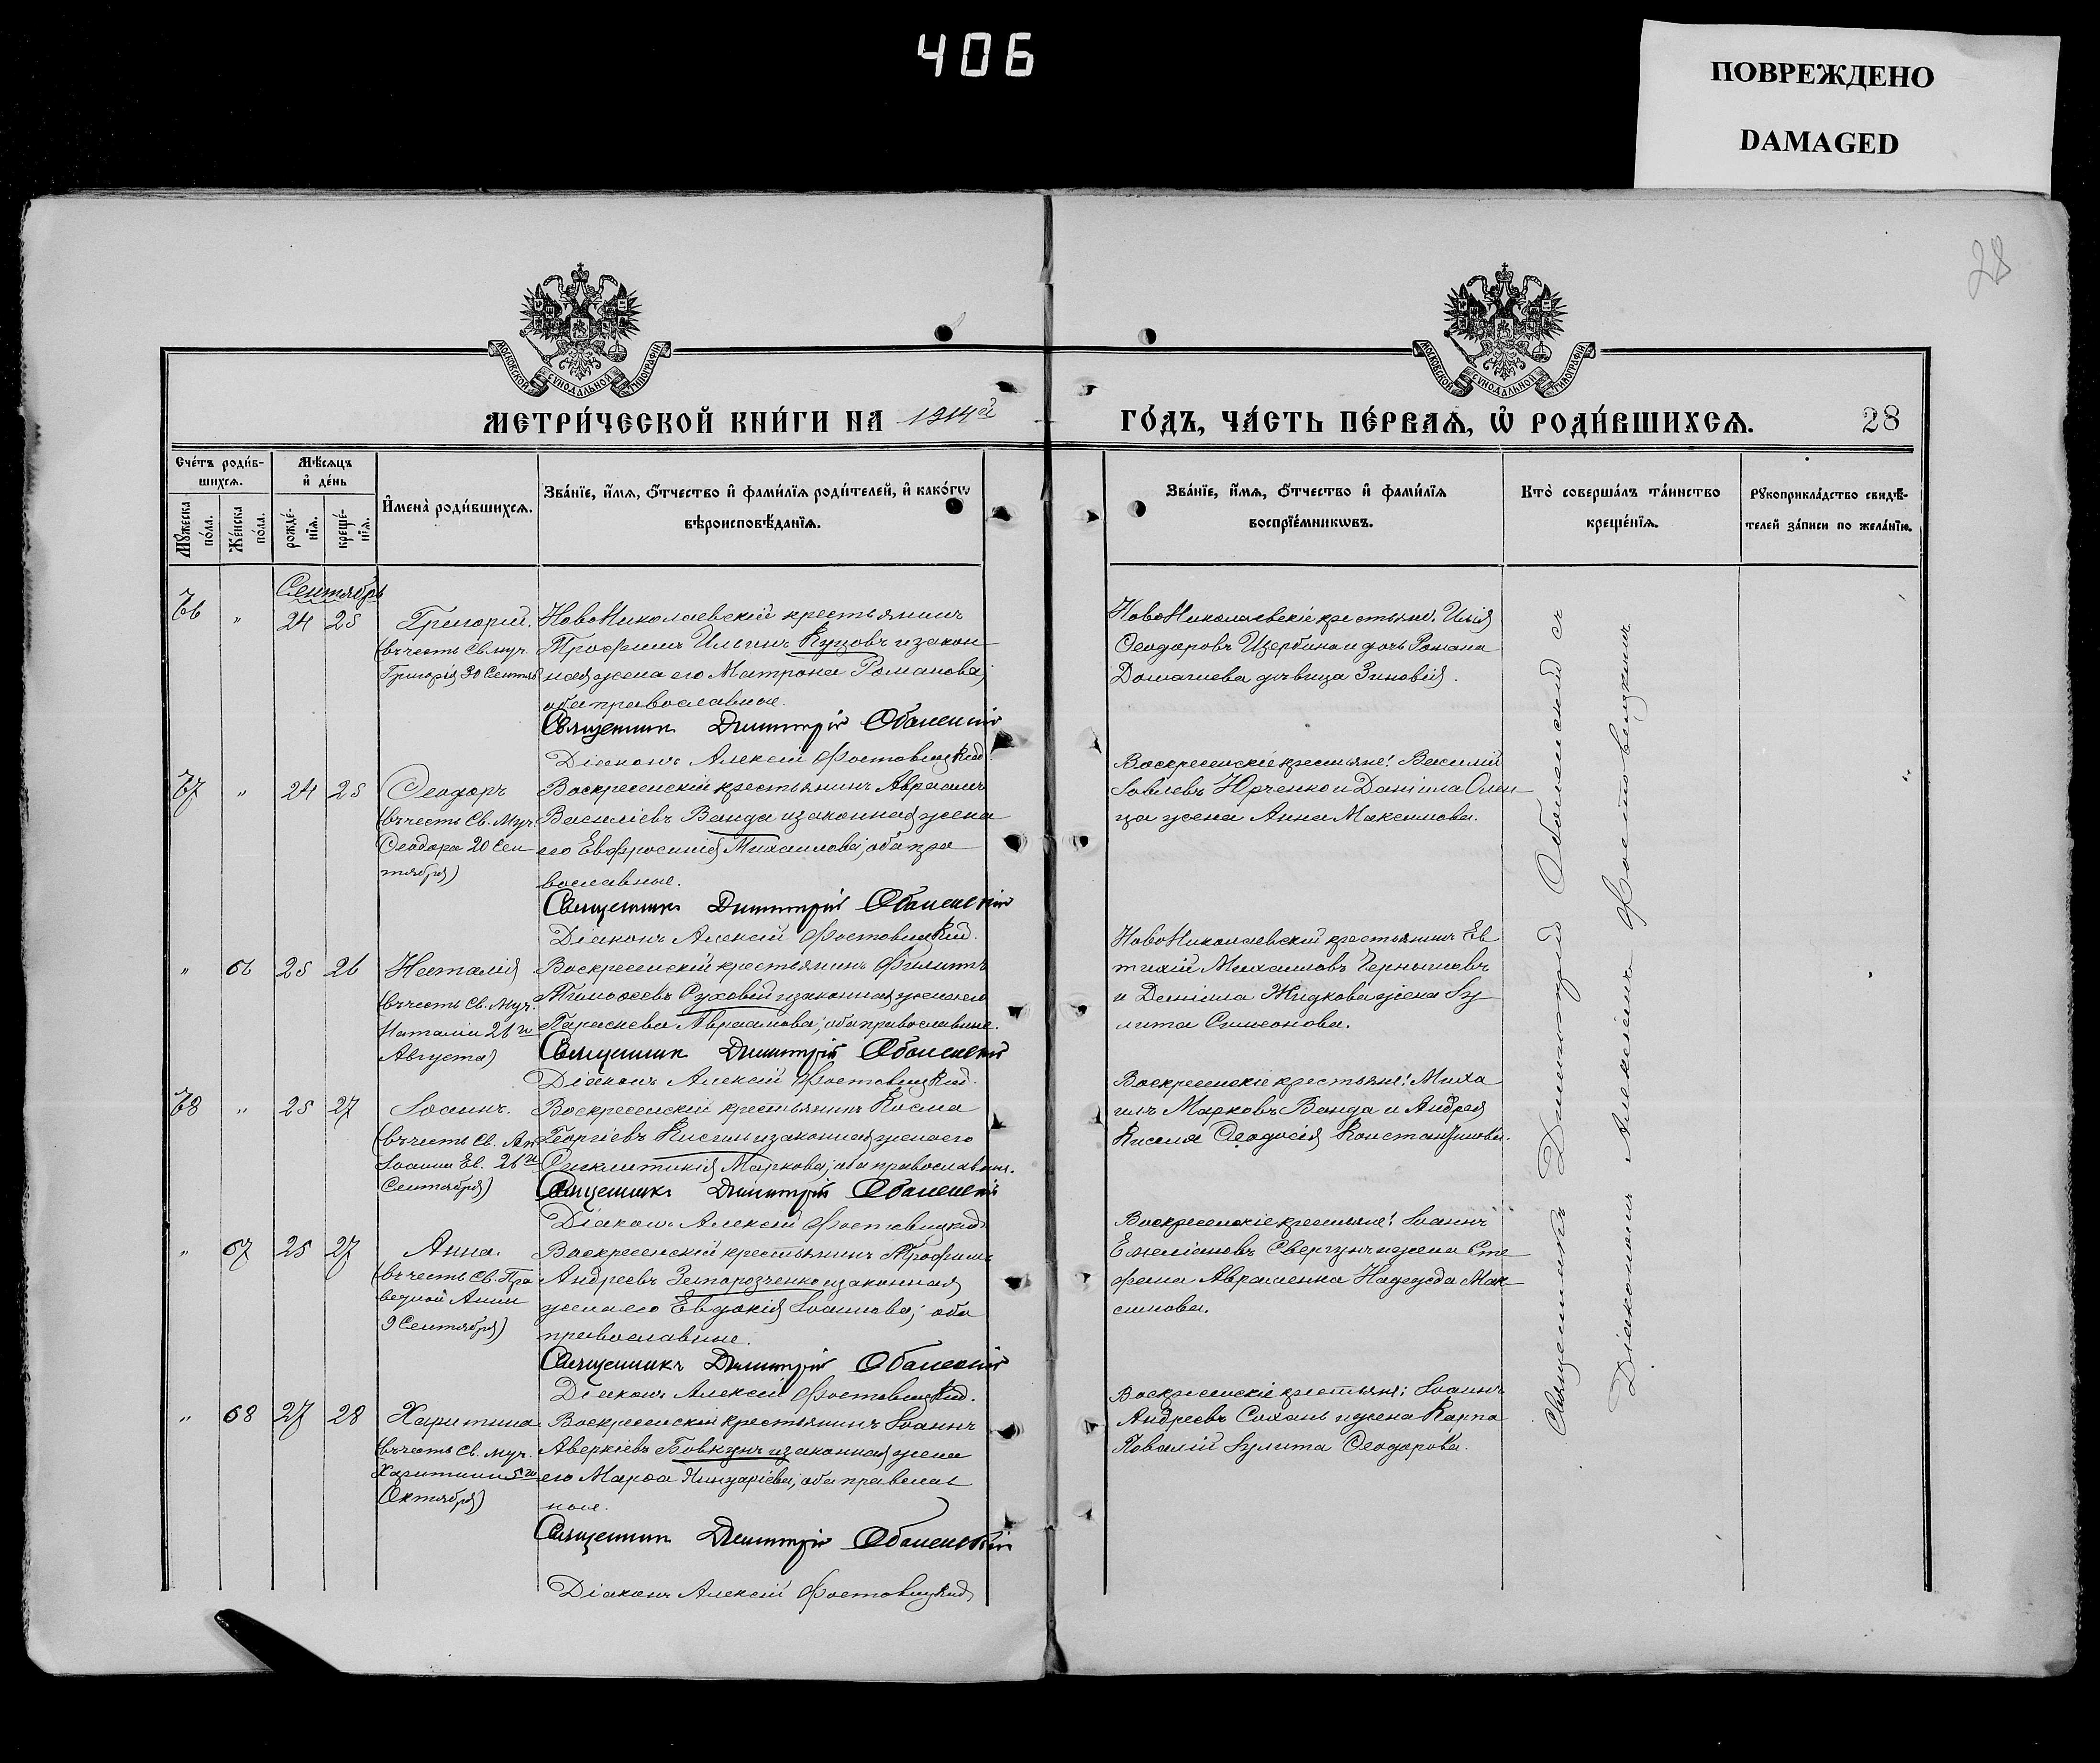 406
ПОВРЕЖДЕНО
DAMAGED
28
МОСКОВСКОЙ СУНОДАЛЬНОЙ ТИПОГРАФІИ
МОСКОВСКОЙ СУНОДАЛЬНОЙ ТИПОГРАФІИ
МЕТРИ́ЧЕСКОЙ КНИ́ГИ НА 1914й
ГО́ДЪ, ЧА́СТЬ ПЕ́РВАѦ, Ѡ҆ РОДИ́ВШИХСѦ. 28
Сче́тъ роди́в-
шихсѧ.
Мꙋ́жеска по́ла.
Же́нска по́ла.
Мѣ́сѧцъ
и҆ де́нь
рожде́-
нїѧ.
креще́-
нїѧ.
И҆мена̀ роди́вшихсѧ.
Зва́нїе, и҆́мѧ, ѻ҆́тчество и҆ фами́лїѧ роди́телей, и҆ како́гѡ
вѣроисповѣ́данїѧ.
Зва́нїе, и҆́мѧ, ѻ҆́тчество и҆ фами́лїѧ
воспрїе́мникѡвъ.
Кто̀ соверша́лъ та́инство
креще́нїѧ.
Рꙋкоприкла́дство свидѣ́-
телей за́писи по жела́нїю.
Сентябрь
76 " 24 25 Григорій.
(въ честь Св. муч.
Григорія 30 Сентяб
НовоНиколаевскій крестьянинъ
Трофимъ Ильинъ Куцовъ и закон
ная жена его Матрона Романова;
оба православные.
Священникъ Димитрій Оболенскій
Діаконъ Алексій Фостовицкій.
НовоНиколаевскіе крестьяне: Илія
Ѳеодоровъ Щербина и дочь Романа
девица Зиновія.
77 " 24 25 Ѳеодоръ
(въ честь Св. Муч.
Ѳеодора 20 Сен
тября)
Воскресенскій крестьянинъ Авраамъ
Василіевъ Ванда и законная жена
его Евфросинія Михаилова; оба пра
вославные.
Священникъ Димитрій Оболенскій
Діаконъ Алексій Фостовицкій.
Воскресенскіе крестьяне: Василій
Іовлевъ Юрченко и Даніила
ца жена Анна Максимова.
" 66 25 26 Наталія
(въ честь Св. Муч.
Наталіи 26го
Августа)
Воскресенскій крестьянинъ Филиппъ
Тимоѳеевъ Суховей и законная жена его
Параскева Авраамова; оба православные.
Священникъ Димитрій Оболенскій
Діаконъ Алексій Фостовицкій.
НовоНиколаевскій крестьянинъ Ев
тихій Михаиловъ Чернышовъ
и Даніила Жидкова жена Іу
лита Симеонова.
78 " 25 27 Іоаннъ.
(въ честь Св. Ап
Іоанна Ев. 26го
Сентября)
Воскресенскій крестьянинъ Косма
Георгіевъ Кисель и законная жена его
Синклитикія Маркова; оба православные.
Священникъ Димитрій Оболенскій
Діаконъ Алексій Фостовицкій
Воскресенскіе крестьяне: Миха
илъ Марковъ Ванда и Андрея
Киселя Ѳеодосія Константинова.
" 67 25 27 Анна.
(въ честь Св. Пра
ведной Анны
9 Сентября)
Воскресенскій крестьянинъ Трофимъ
Андреевъ Запорозченко и законная
жена его Евдокія Іоаннова; оба
православные.
Священникъ Димитрій Оболенскій
Діаконъ Алексій Фостовицкій.
Воскресенскіе крестьяне: Іоаннъ
Емеліановъ Свергунъ и жена Сте
фана Авраменка Надежда Мак
симова.
" 68 27 28 Харитина
(въ честь Св. муч.
Харитины 5го
Октября)
Воскресенскій крестьянинъ Іоаннъ
Аверкіевъ Бовкунъ и законная жена
его Марѳа оба православ
ные.
Священникъ Димитрій Оболенскій
Діаконъ Алексій Фостовицкій
Воскресенскіе крестьяне: Іоаннъ
Андреевъ Сохань и жена Карпа
Іулита Ѳеодорова.
Священникъ Димитрій Оболенскій съ
Діакономъ Алексіемъ Фостовицкимъ